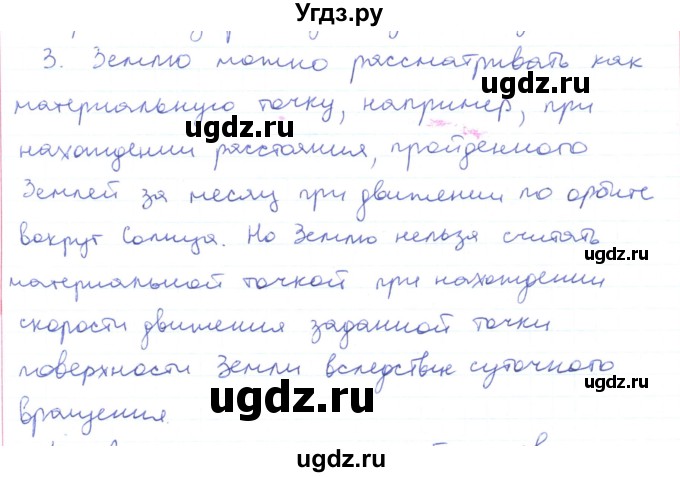 Угдз.ру
3. Землю можно рассматривать как
материальную точку, например, при
ugdz.ru ugdz.ru
нахождении расстояния, пройденного
Землей за месяц при движении по орбите
вокруг Солнца. Но Землю нельзя считать
ugdz.ru ugdz.ru
материальной точкой при нахождении
скорости движения заданной точки
поверхности Земли вследствие суточного
ugdz.ru ugdz.ru
вращения.
ugdz.ru